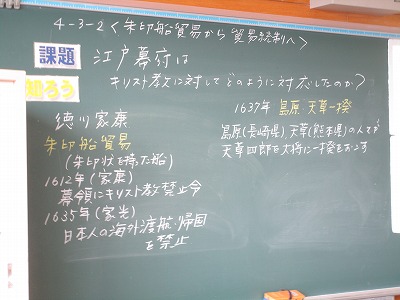 4-3-2<朱印船貿易から貿易統制へ>
課題
江戸幕府は
キリスト教に対してどのように対応したのか?
知ろう
徳川家康
朱印船貿易
(朱印状を持った船)
1612年(家康)
幕領にキリスト教禁止令
1635年(家光)
日本人の海外渡航・帰国
を禁止
1637年 島原 天草一揆
島原(長崎県)天草(熊本県)の人々が
天草四郎を大将に一揆をおこす